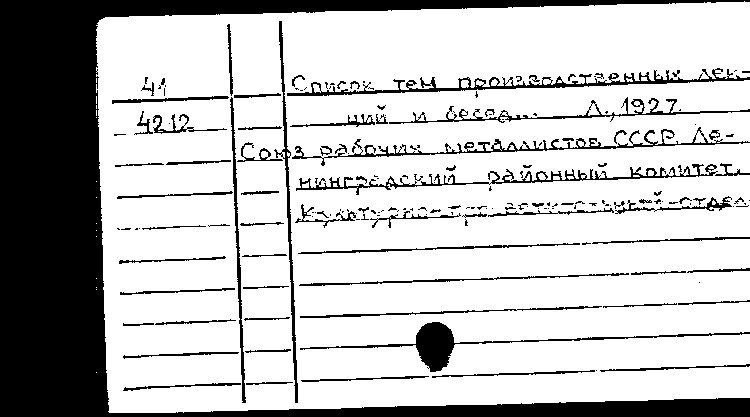 41 Список тем производственных лек-
4212 ций и бесед... Л., 1927.
Союз рабочих металлистов СССР. Ле-
нинградский районный комитет.
Культурно-просветительный отдел